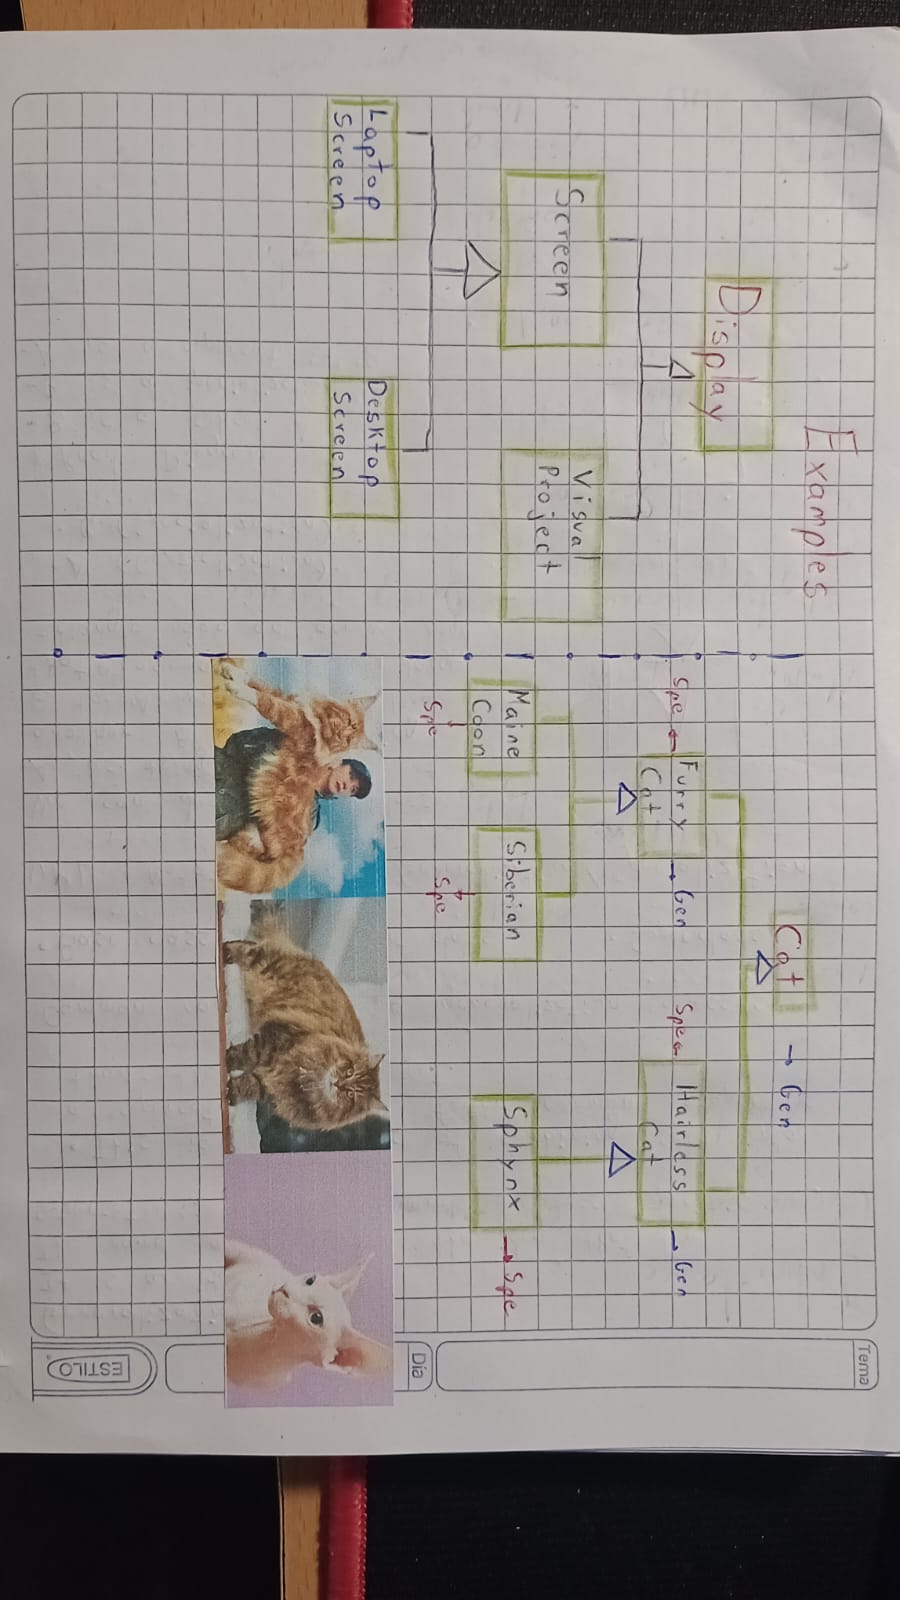 Examples
Display
Screen
Visual
Project
Laptop
Screen
Desktop
Screen
Cat → Gen
Spe ← Furry
Cat → Gen
Spe ← Hairless
Cat → Gen
Maine
Coon
Spe
Siberian
Spe
Sphynx → Spe
Tema
Dia
ESTILO